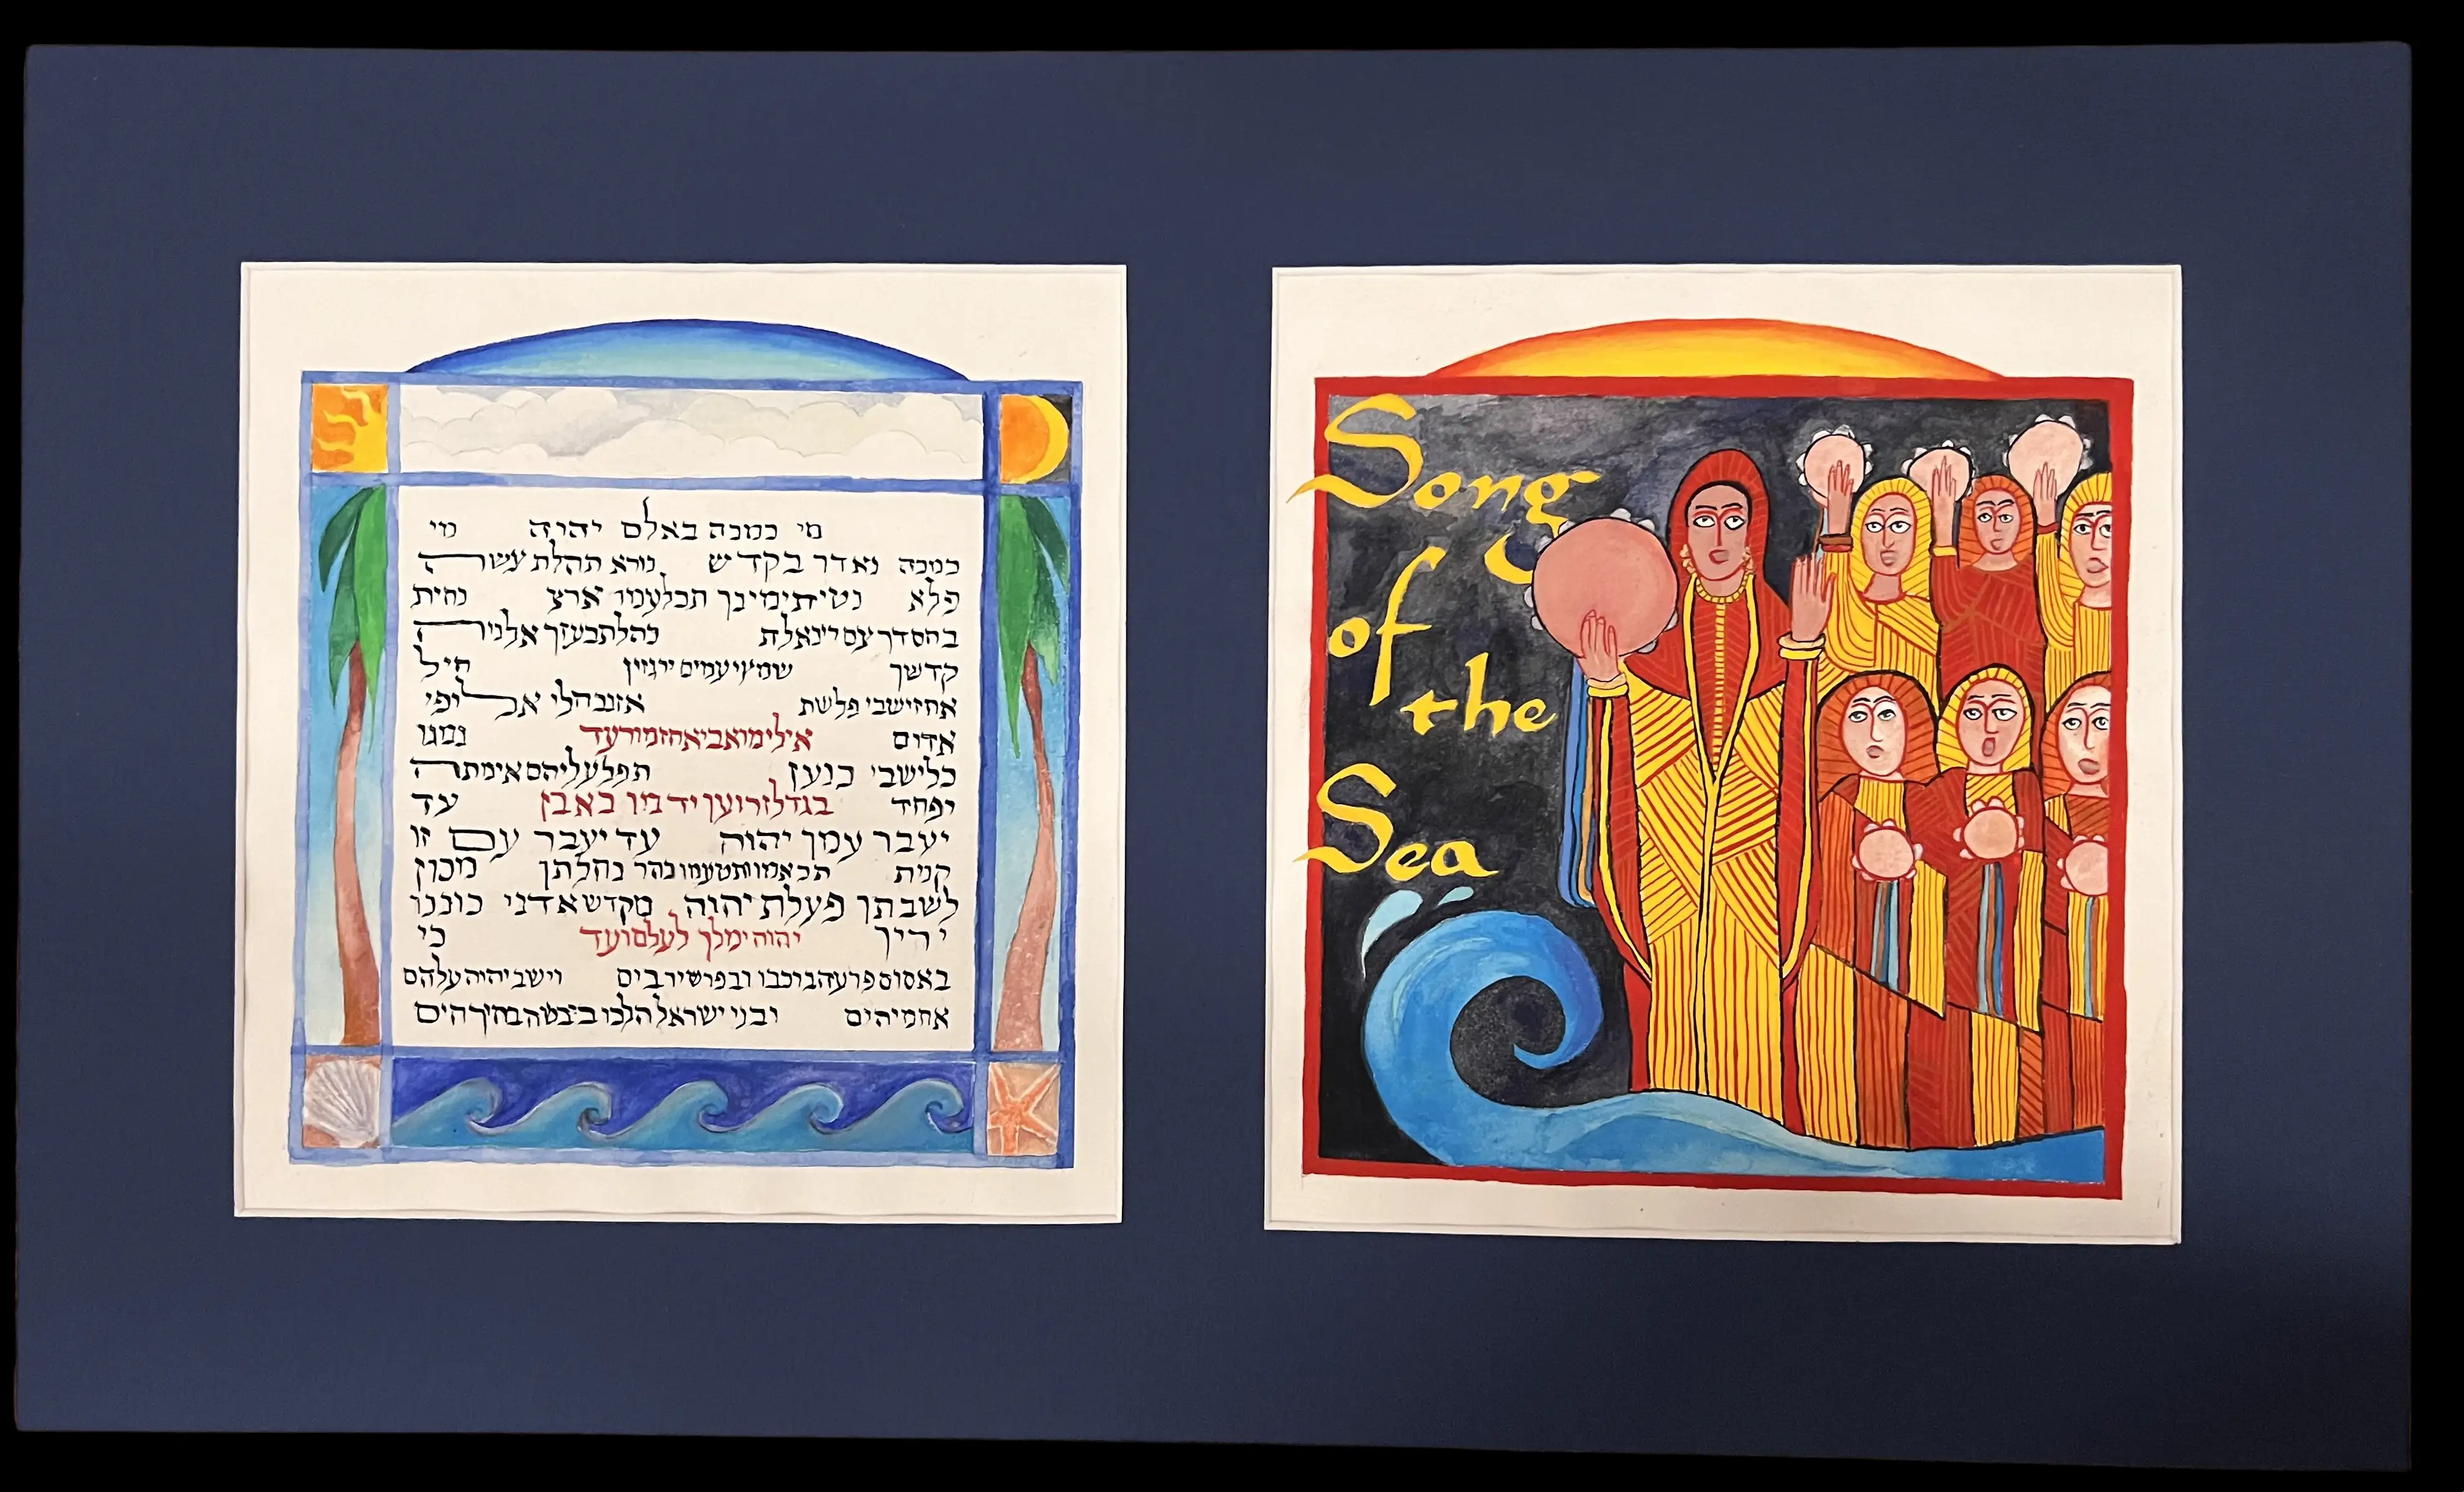 מי כמכה באלם יהוה מי
כמכה נאדר בקדש נורא תהלת עשה
פלא נטית ימינך תבלעמו ארץ נחית
בחסדך עם זו גאלת נהלת בעזך אל נוה
קדשך שמעו עמים ירגזון חיל
אחז ישבי פלשת אז נבהלו אלופי
אדום אילי מואב יאחזמו רעד נמגו
כל ישבי כנען תפל עליהם אימתה
ופחד בגדל זרוען ידמו כאבן עד
יעבר עמך יהוה עד יעבר עם זו
קנית תבאמו ותטעמו בהר נחלתך מכון
לשבתך פעלת יהוה מקדש אדני כוננו
ידיך יהוה ימלך לעלם ועד כי
בא סוס פרעה ברכבו ובפרשיו בים וישב יהוה עלהם
את מי הים ובני ישראל הלכו ביבשה בתוך הים
Song
of
the
Sea